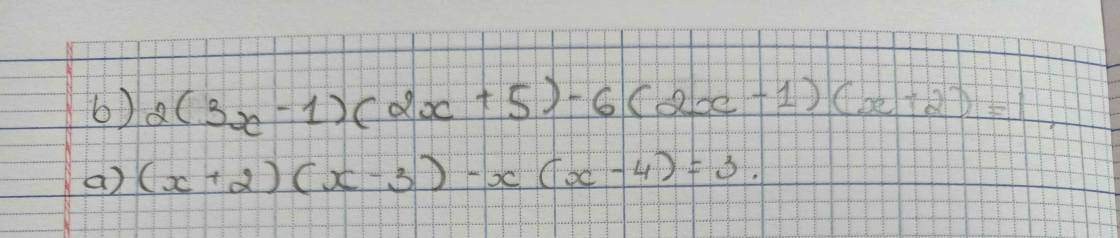 b) 2(3x - 1)(2x + 5) - 6(2x - 1)(x + 2) = 1
a) (x + 2)(x - 3) - x(x - 4) = 3.